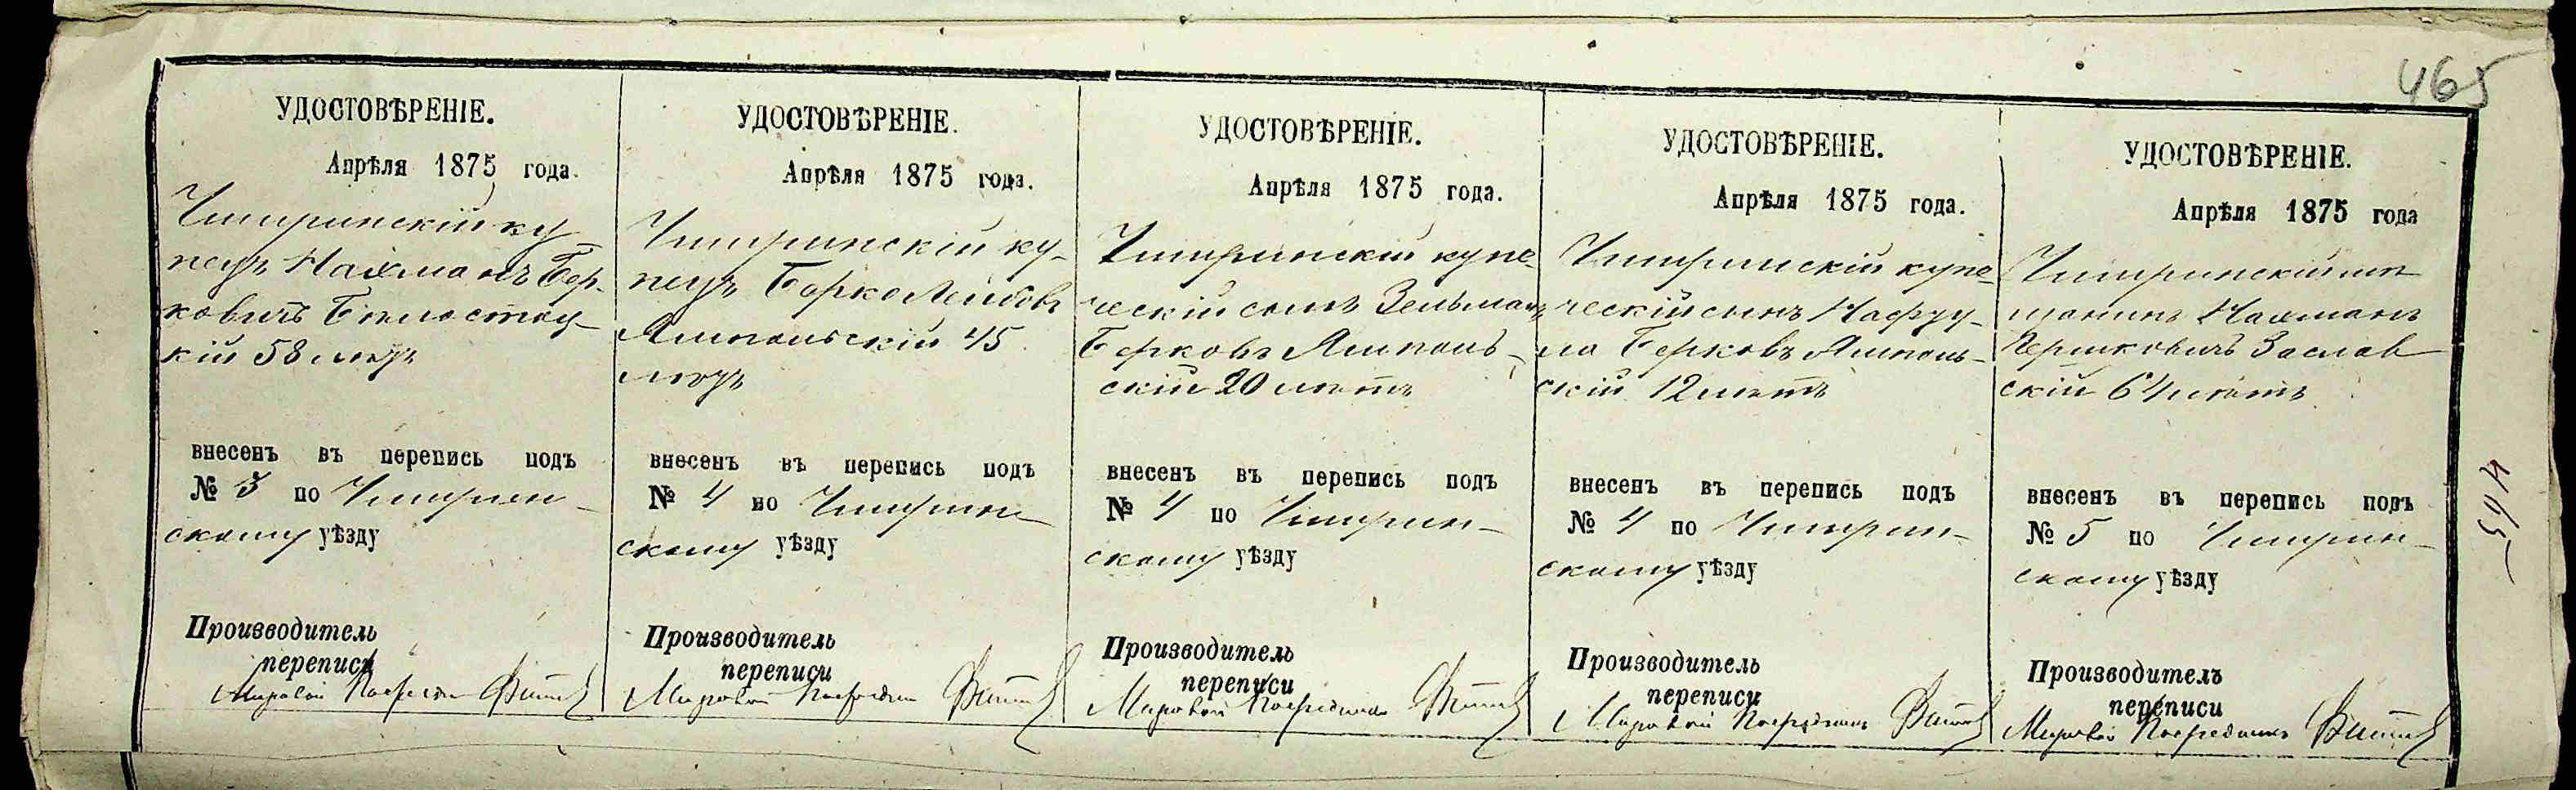 465
УДОСТОВѢРЕНІЕ.
Апрѣля 1875 года.
Чигиринскій ку
пецъ Нахманъ Бер-
ковичъ Бѣлостоц-
кій 58 лѣтъ
внесенъ въ перепись подъ
№ 3 по Чигирин-
скому уѣзду
Производитель
переписи
Мировой Посредникъ
УДОСТОВѢРЕНІЕ.
Апрѣля 1875 года.
Чигиринскій ку-
пецъ Берко Лейбовъ
Ямпольскій 45
лѣтъ
внесенъ въ перепись подъ
№ 4 по Чигирин
скому уѣзду
Производитель
переписи
Мировой Посредникъ
УДОСТОВѢРЕНІЕ.
Апрѣля 1875 года.
Чигиринскій купе-
ческій сынъ Зельманъ
Берковъ Ямполь-
скій 20 лѣтъ
внесенъ въ перепись подъ
№ 4 по Чигирин-
скому уѣзду
Производитель
переписи
Мировой Посредникъ
УДОСТОВѢРЕНІЕ.
Апрѣля 1875 года.
Чигиринскій купе
ческій сынъ Нафту-
ла Берковъ Ямполь-
скій 12 лѣтъ
внесенъ въ перепись подъ
№ 4 по Чигирин-
скому уѣзду
Производитель
переписи
Мировой Посредникъ
УДОСТОВѢРЕНІЕ.
Апрѣля 1875 года
Чигиринскій мѣ
щанинъ Нахманъ
Гершковичъ Заслав
скій 64 лѣтъ
внесенъ въ перепись подъ
№ 5 по Чигирин-
скому уѣзду
Производитель
переписи
Мировой Посредникъ
465